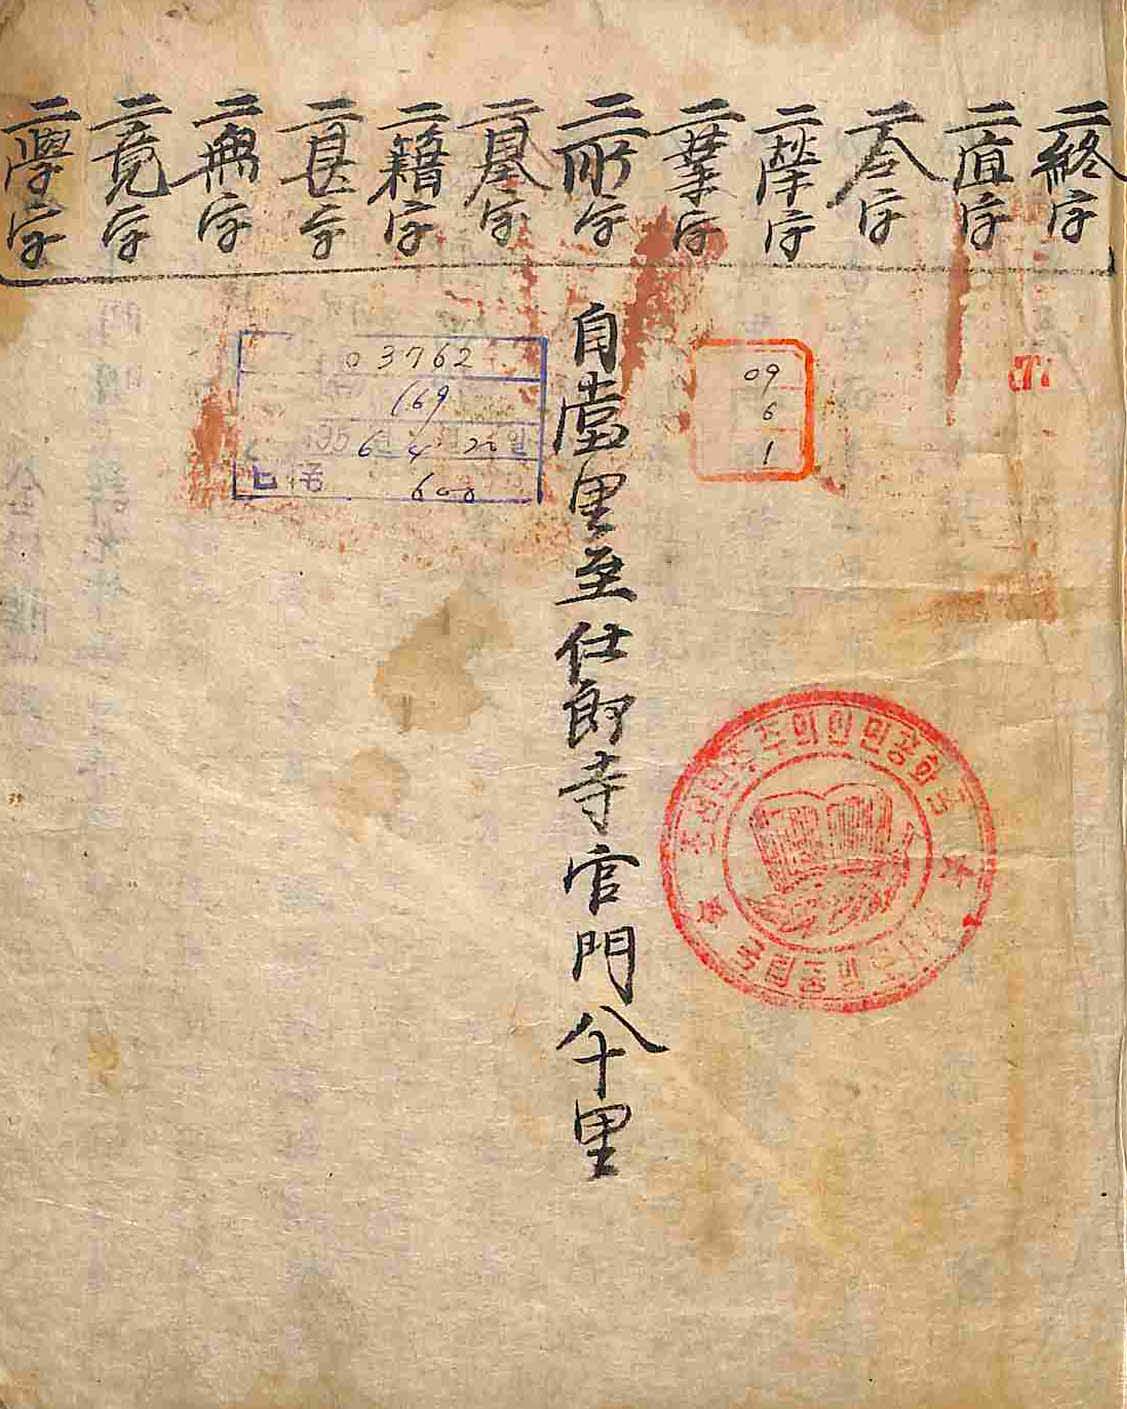 二終字
二宜字
二令字
二榮字
二業字
二所字
二基字
二籍字
二甚字
二無字
二竟字
二學字
自當里至仕郎寺官門八千里
09
6
1
03762
169
6년 4월 20일
600
조선민주주의인민공화국